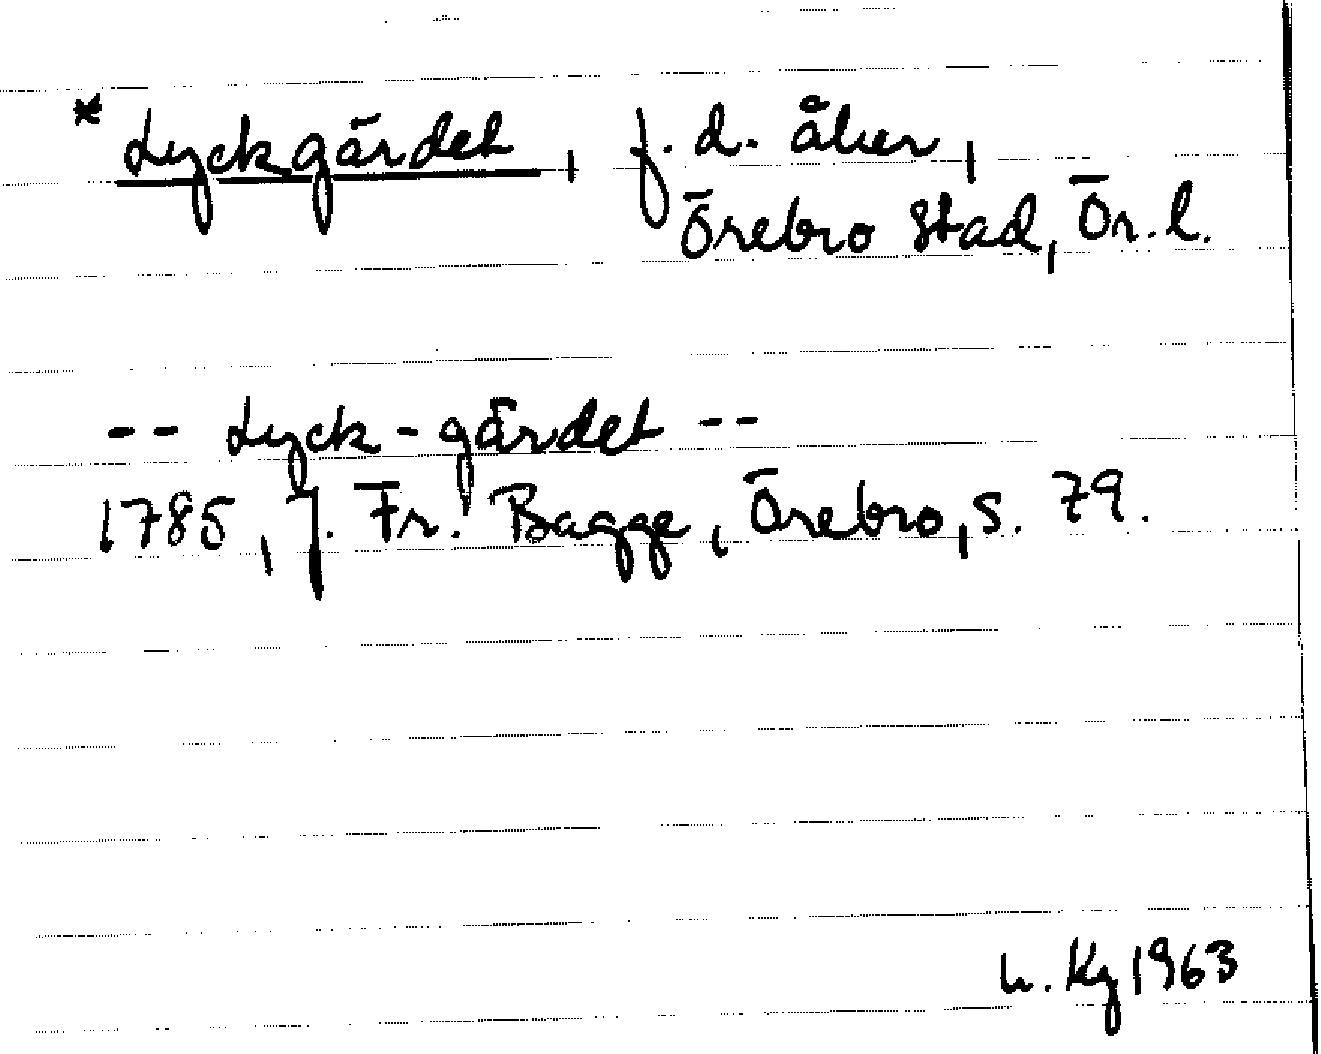 * Lyckgärdet, f.d. åker,
Örebro stad, Ör.l.
-- Lyck-gärdet --
1785, J. Fr. Bagge, Örebro, s. 79.
h. Kg 1963